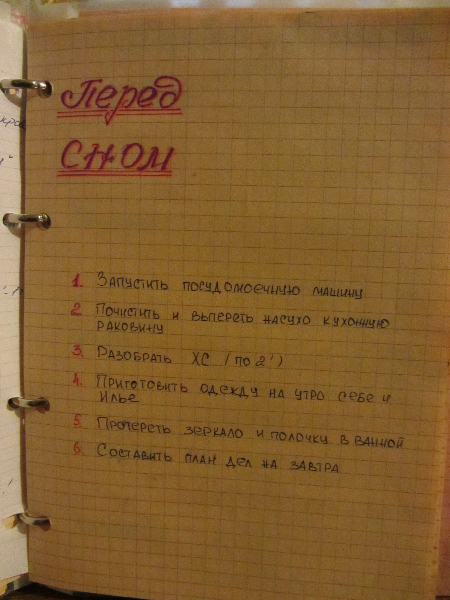 Перед
сном
1. Запустить посудомоечную машину
2. Почистить и вытереть насухо кухонную
раковину
3. Разобрать ХС (по 2')
4. Приготовить одежду на утро себе и
Илье
5. Протереть зеркало и полочку в ванной
6. Составить план дел на завтра